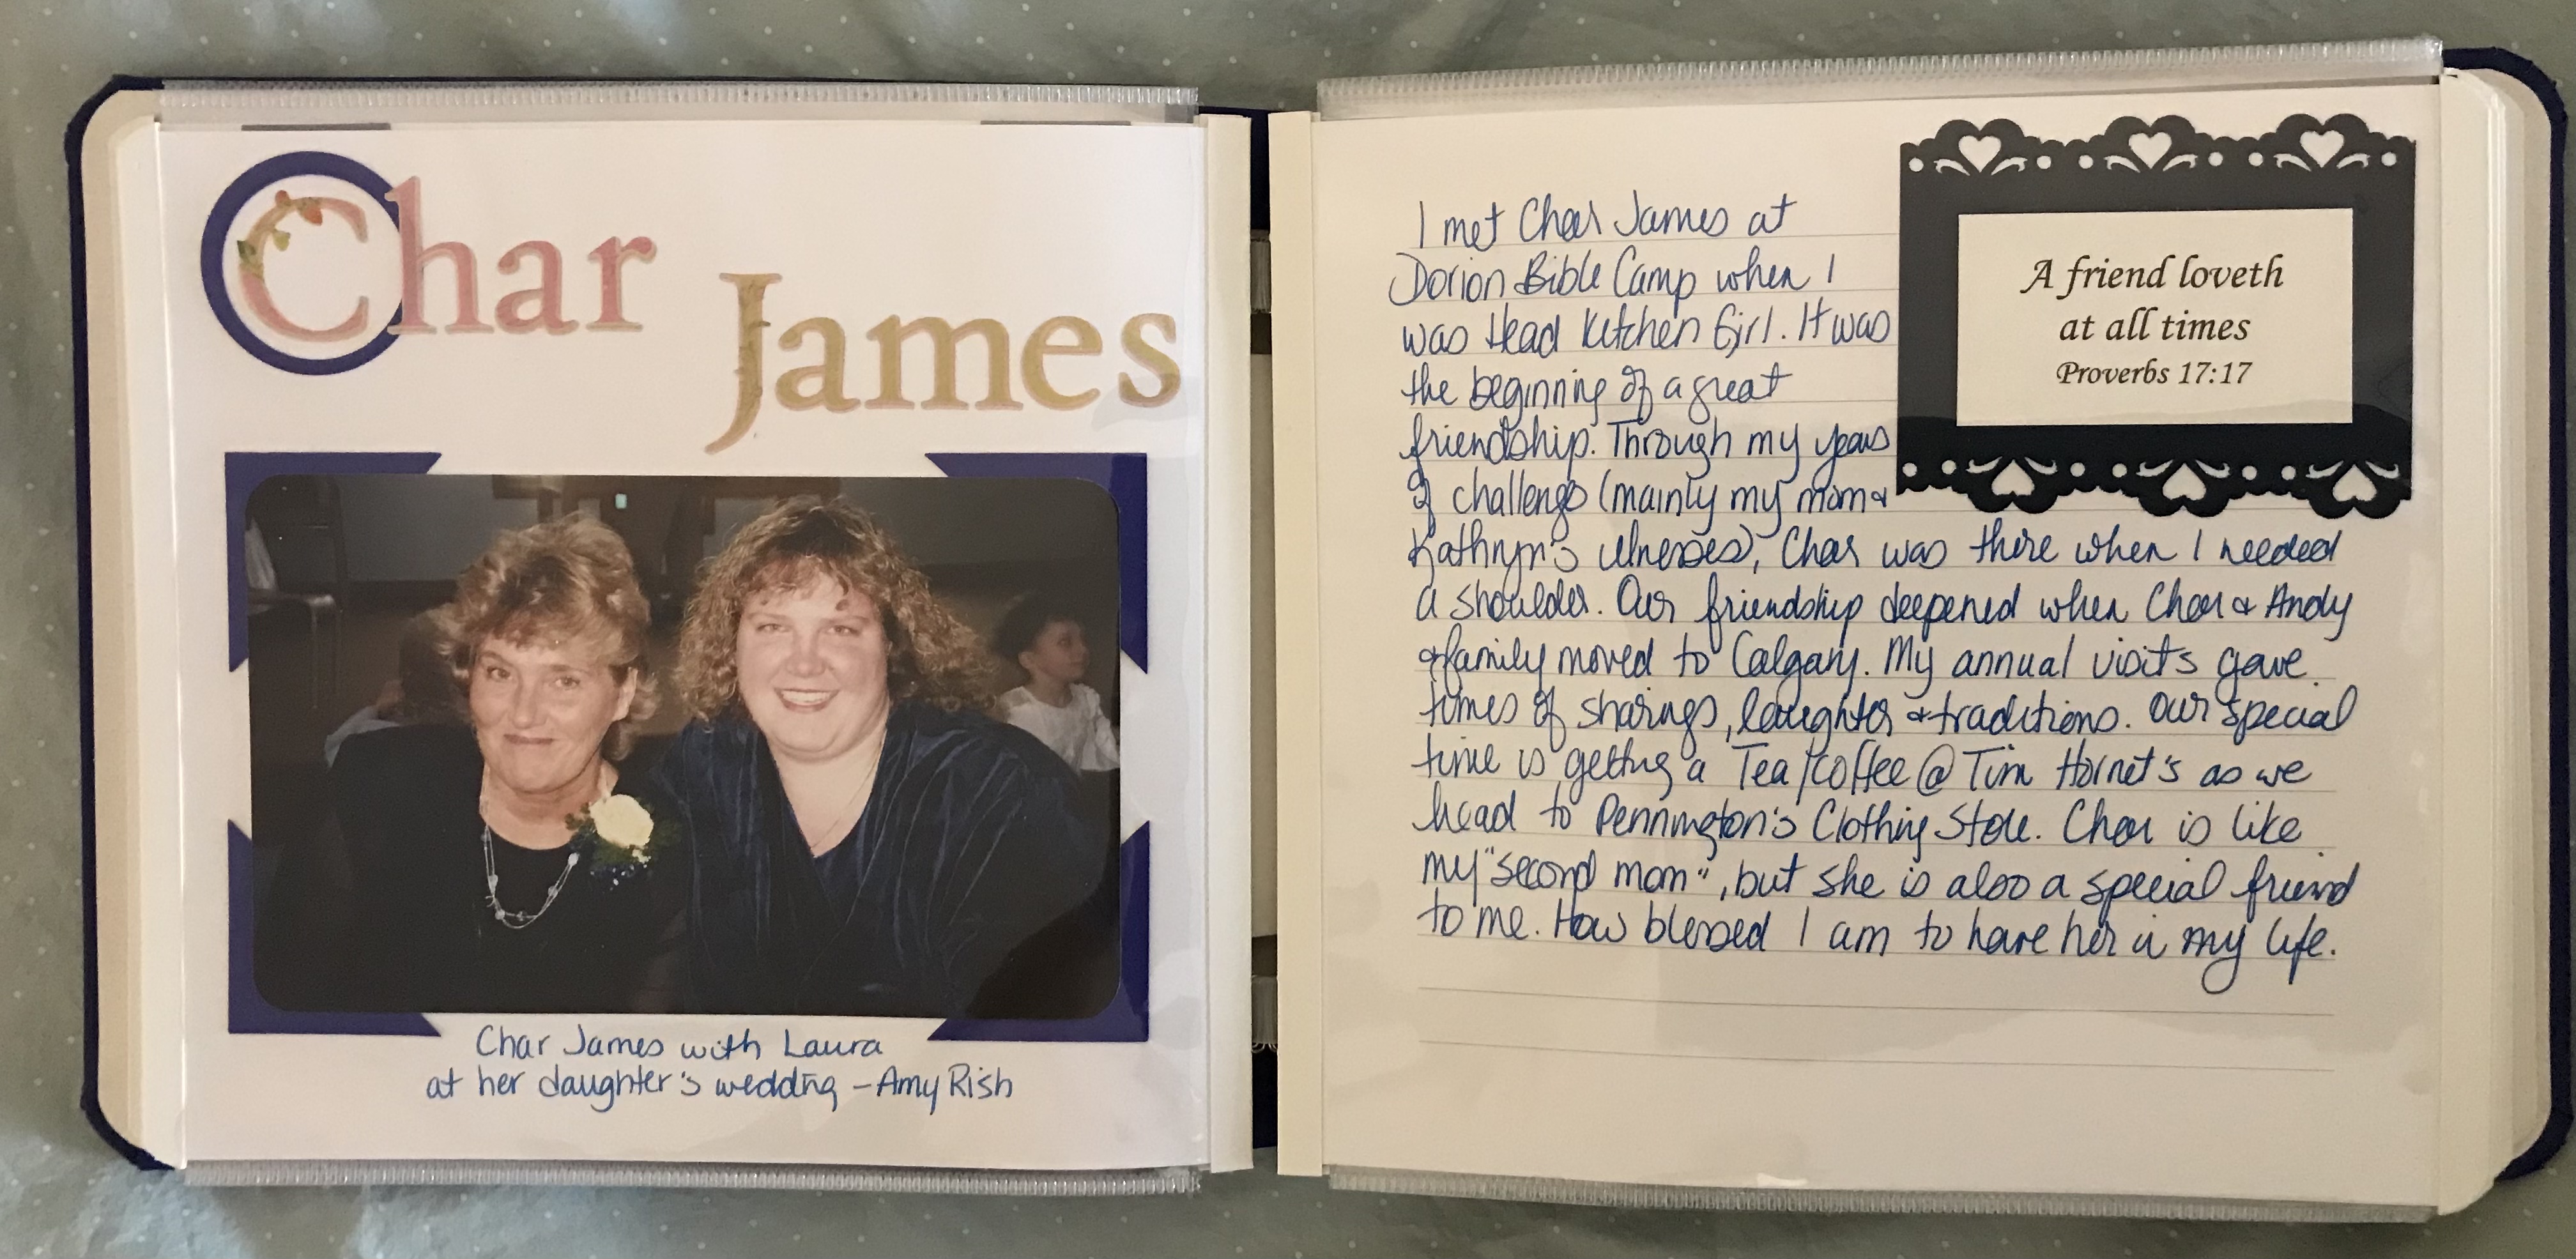 Char
James
Char James with Laura
at her daughter's wedding - Amy Rish
I met Char James at
Dorion Bible Camp when I
was Head Kitchen Girl. It was
the beginning of a great
friendship. Through my years
of challenge (mainly my mom &
Kathryn's illnesses), Char was there when I needed
a shoulder. Our friendship deepened when Char & Andy
& family moved to Calgary. My annual visits gave
times of sharings, laughter & traditions. Our special
time is getting a Tea/Coffee @ Tim Hornet's as we
head to Pennington's Clothing Store. Char is like
my "second mom", but she is also a special friend
to me. How blessed I am to have her in my life.
A friend loveth
at all times
Proverbs 17:17